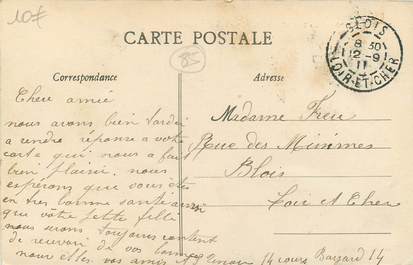 10€
CARTE POSTALE
85
BLOIS
8 30
12 - 9
11
LOIR-ET-CHER
Correspondance
Adresse
Chere amie
nous avons bien tardé
a rendre réponse a votre
carte qui nous a fait
bien plaisir, nous
espérons que vous ete
en tres bonne santé ainsi
que vôtre petite fille
nous serons toujours content
de recevoir de vos bonnes
nouvelles vos amis
14 cours Bayard 14
Madame Freu
Rue des Minimes
Blois
Loir et Cher